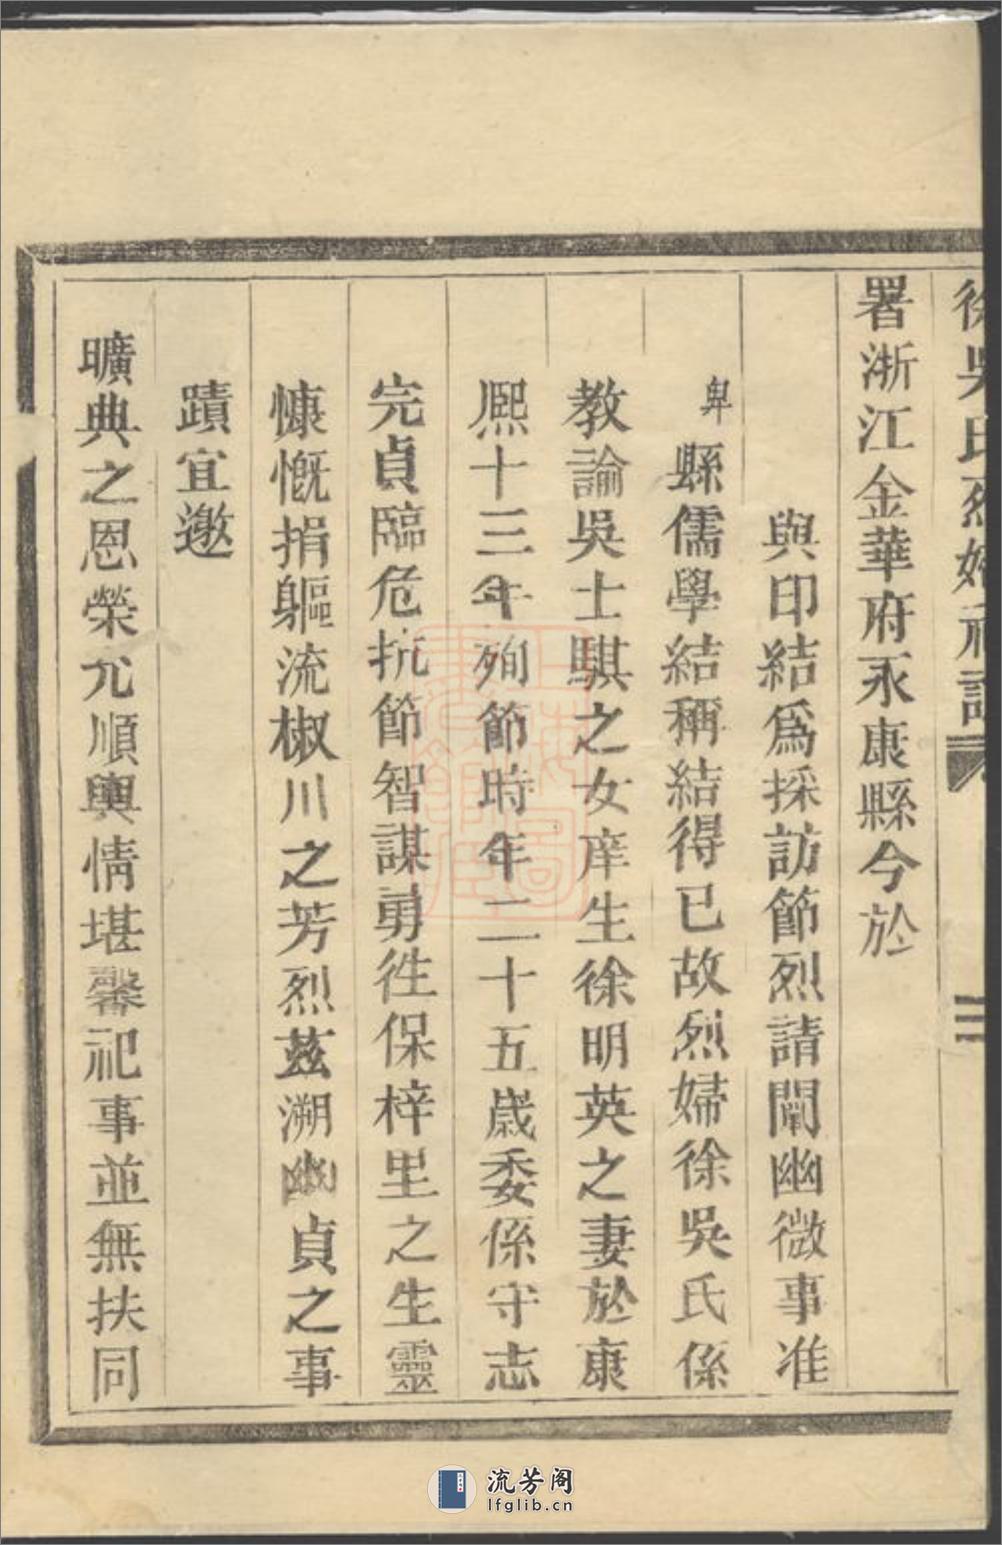 徐吳氏烈婦祠記
二
署浙江金華府永康縣今於
與印結為採訪節烈請闡幽微事准
卑縣儒學結稱結得已故烈婦徐吳氏係
教諭吳士騏之女庠生徐明英之妻於康
熈十三年殉節時年二十五歲委係守志
完貞臨危抗節智謀勇徃保梓里之生靈
慷慨捐軀流椒川之芳烈茲溯幽貞之事
蹟宜邀
曠典之恩榮尤順輿情堪馨祀事並無扶同
流芳阁
lfglib.cn